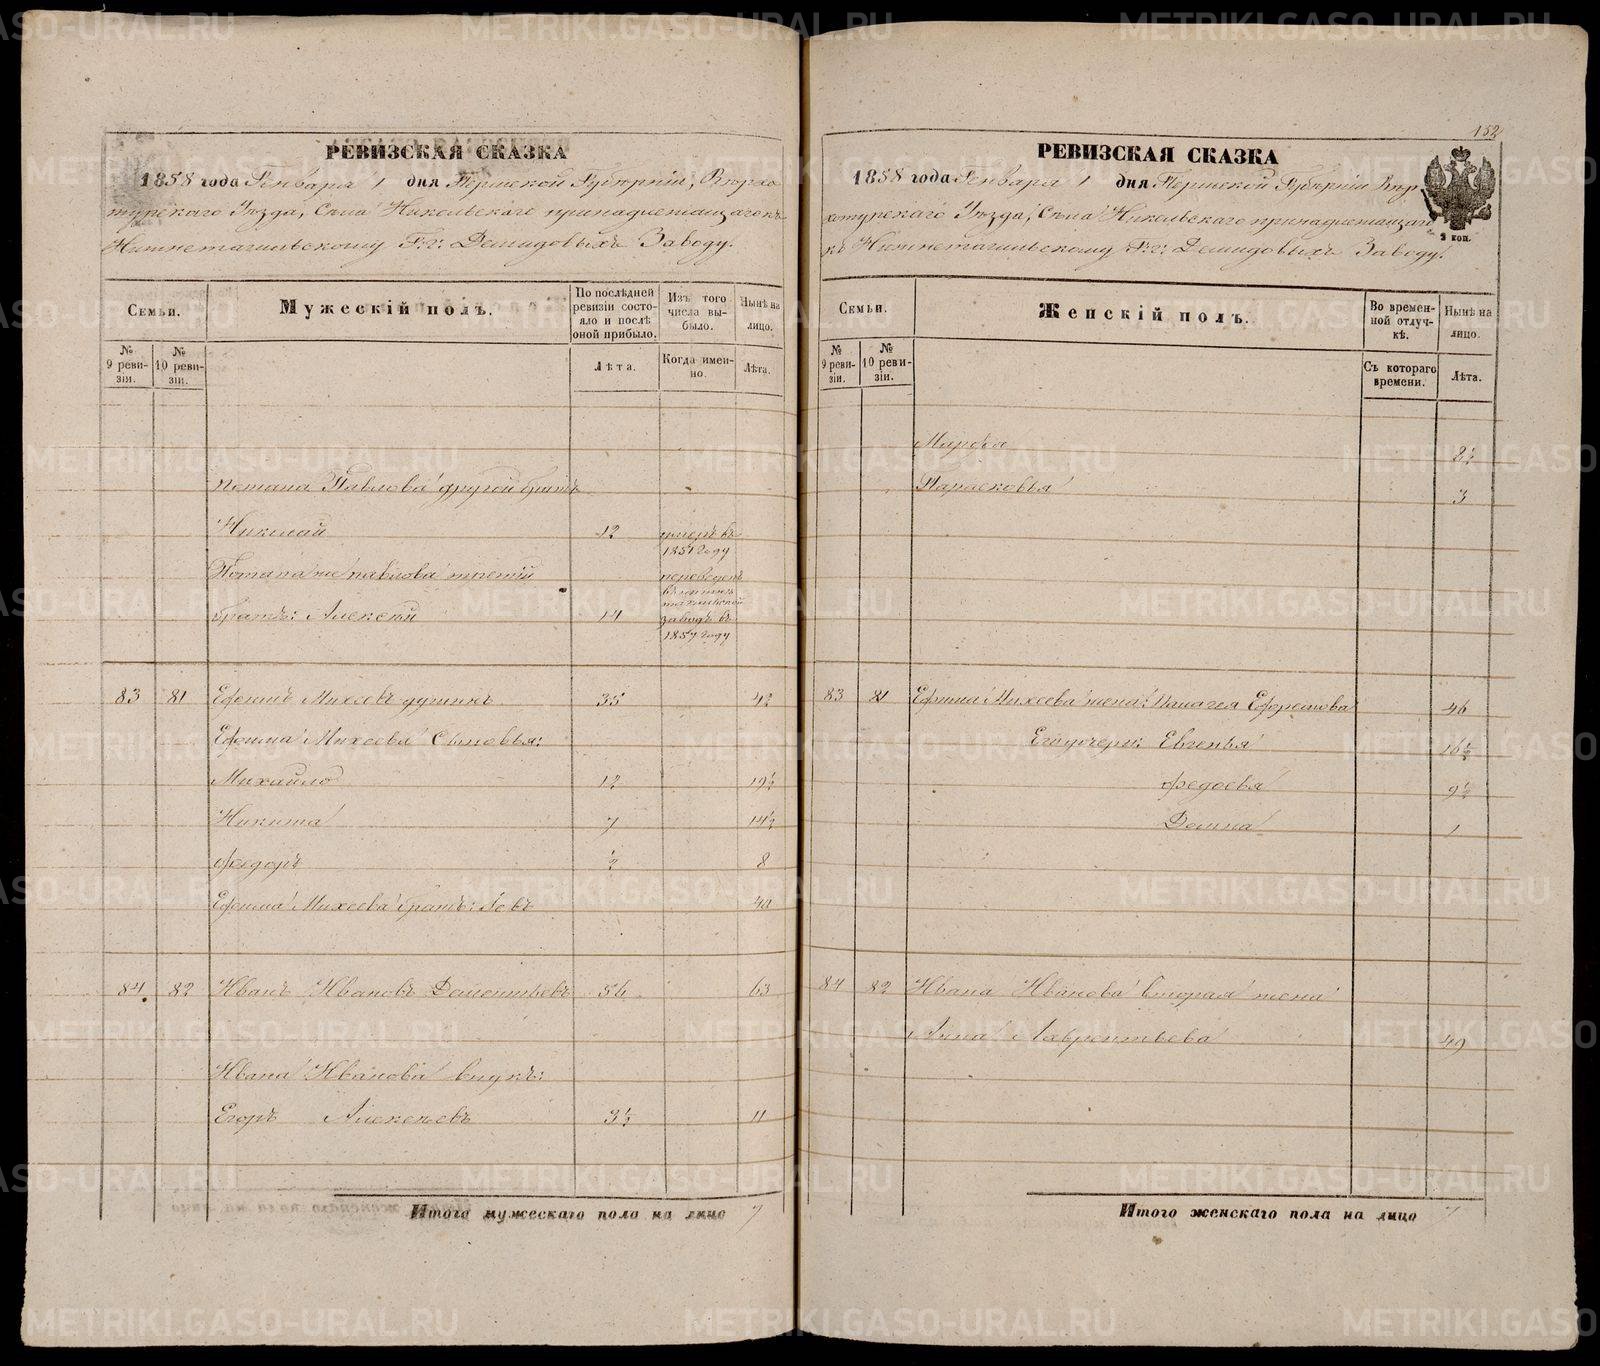 РЕВИЗСКАЯ СКАЗКА
1858 года Генваря 1 дня Пермской Губернiи, Верхо
турскаго Уѣзда, Села Никольскаго принадлежащаго къ
Нижнетагильскому Г.г. Демидовыхъ Заводу.
Семьи.
Мужескій полъ.
По послѣдней ревизіи состояло и послѣ оной прибыло.
Изъ того числа выбыло.
Нынѣ на лицо.
№ 9 ревизіи.
№ 10 ревизіи.
Лѣта.
Когда именно.
Лѣта.
Потапа Павлова другой братъ
Николай 12 умеръ въ 1851 году
Потапа же Павлова третій переведенъ
братъ: Алексѣй 14 заводъ въ 1857 году
83 81 Ефимъ Михеевъ 35 42
Ефима Михеева Сыновья:
Михайло 12 19½
Никита 7 14½
Федоръ ½ 8
Ефима Михеева братъ: Іовъ 40
84 82 Иванъ Ивановъ Дементьевъ 56 63
Ивана Иванова внукъ:
Егоръ Алексѣевъ 3½ 11
Итого мужескаго пола на лицо 7
152
РЕВИЗСКАЯ СКАЗКА
1858 года Генваря 1 дня Пермской Губернiи Вер
хотурскаго Уѣзда, Села Никольскаго принадлежащаго
къ Нижнетагильскому Г.г. Демидовыхъ Заводу.
2 коп.
Семьи.
Женскій полъ.
Во временной отлучкѣ.
Нынѣ на лицо.
№ 9 ревизіи.
№ 10 ревизіи.
Съ котораго времени.
Лѣта.
Марфа 8½
Парасковья 3
83 81 Ефима Михеева жена: Пелагея Ефремова 46
Его дочери: Евгенья 16½
Федосья 9½
Домна 1
84 82 Ивана Иванова вторая жена
Анна Лаврентьева 49
Итого женскаго пола на лицо 7
METRIKI.GASO-URAL.RU